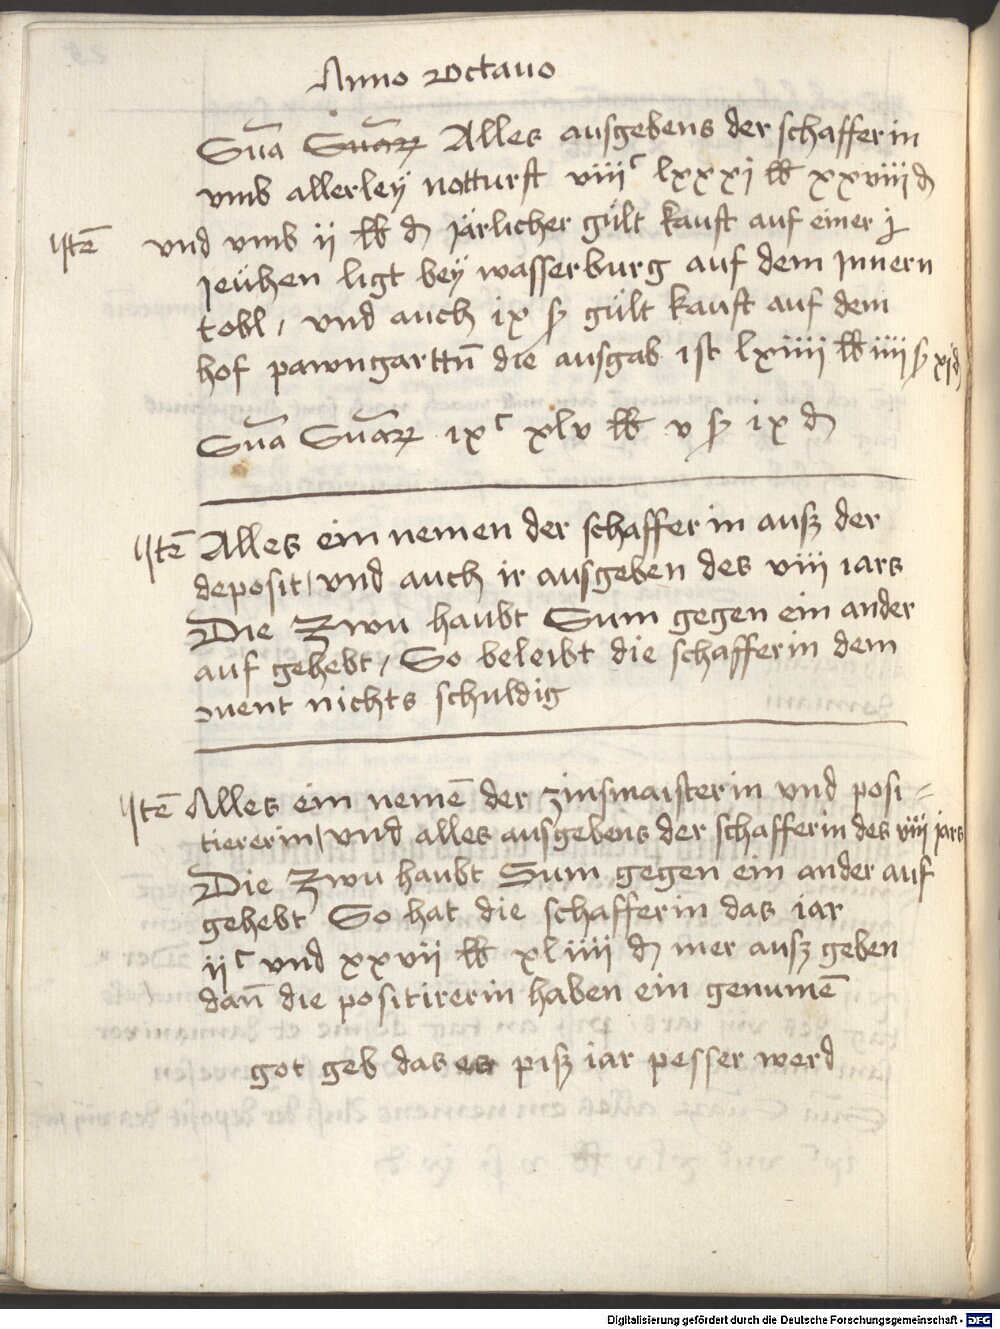 Anno Octauo
Su̅a Sua̅rꝝ Alles ausgebens der schafferin
vmb allerleÿ notturft viiiᶜ lxxxj lb xxviiij d
Ite̅ vnd vmb ij lb d järlicher gült kauft auf einer j
jeuhen ligt beÿ wasserburg auf dem Jnnern
tobl / vnd auch ix ß gült kauft auf dem
hof pawngarttn̅ die ausgab ist lxiiij lb iiij ß xj d
Su̅a Sua̅rꝝ ixᶜ xlv lb v ß ix d
Ite̅ Alles ein nemen der schafferin ausz der
deposit / vnd auch ir ausgeben des viij iars
Die Zwu haubt Sum gegen ein ander
auf gehebt / So beleibt die schafferin dem
nichts schuldig
Ite̅ Alles ein neme̅ der zinsmaisterin vnd posi⸗
tiererin / vnd alles ausgebens der schafferin des viij jars
Die Zwu haubt Sum gegen ein ander auf
gehebt So hat die schafferin das iar
ijᶜ vnd xxvij lb xliiij d mer ausz geben
dan̅ die positirerin haben ein genume̅
got geb das es pisz iar pesser werd
Digitalisierung gefördert durch die Deutsche Forschungsgemeinschaft - DFG